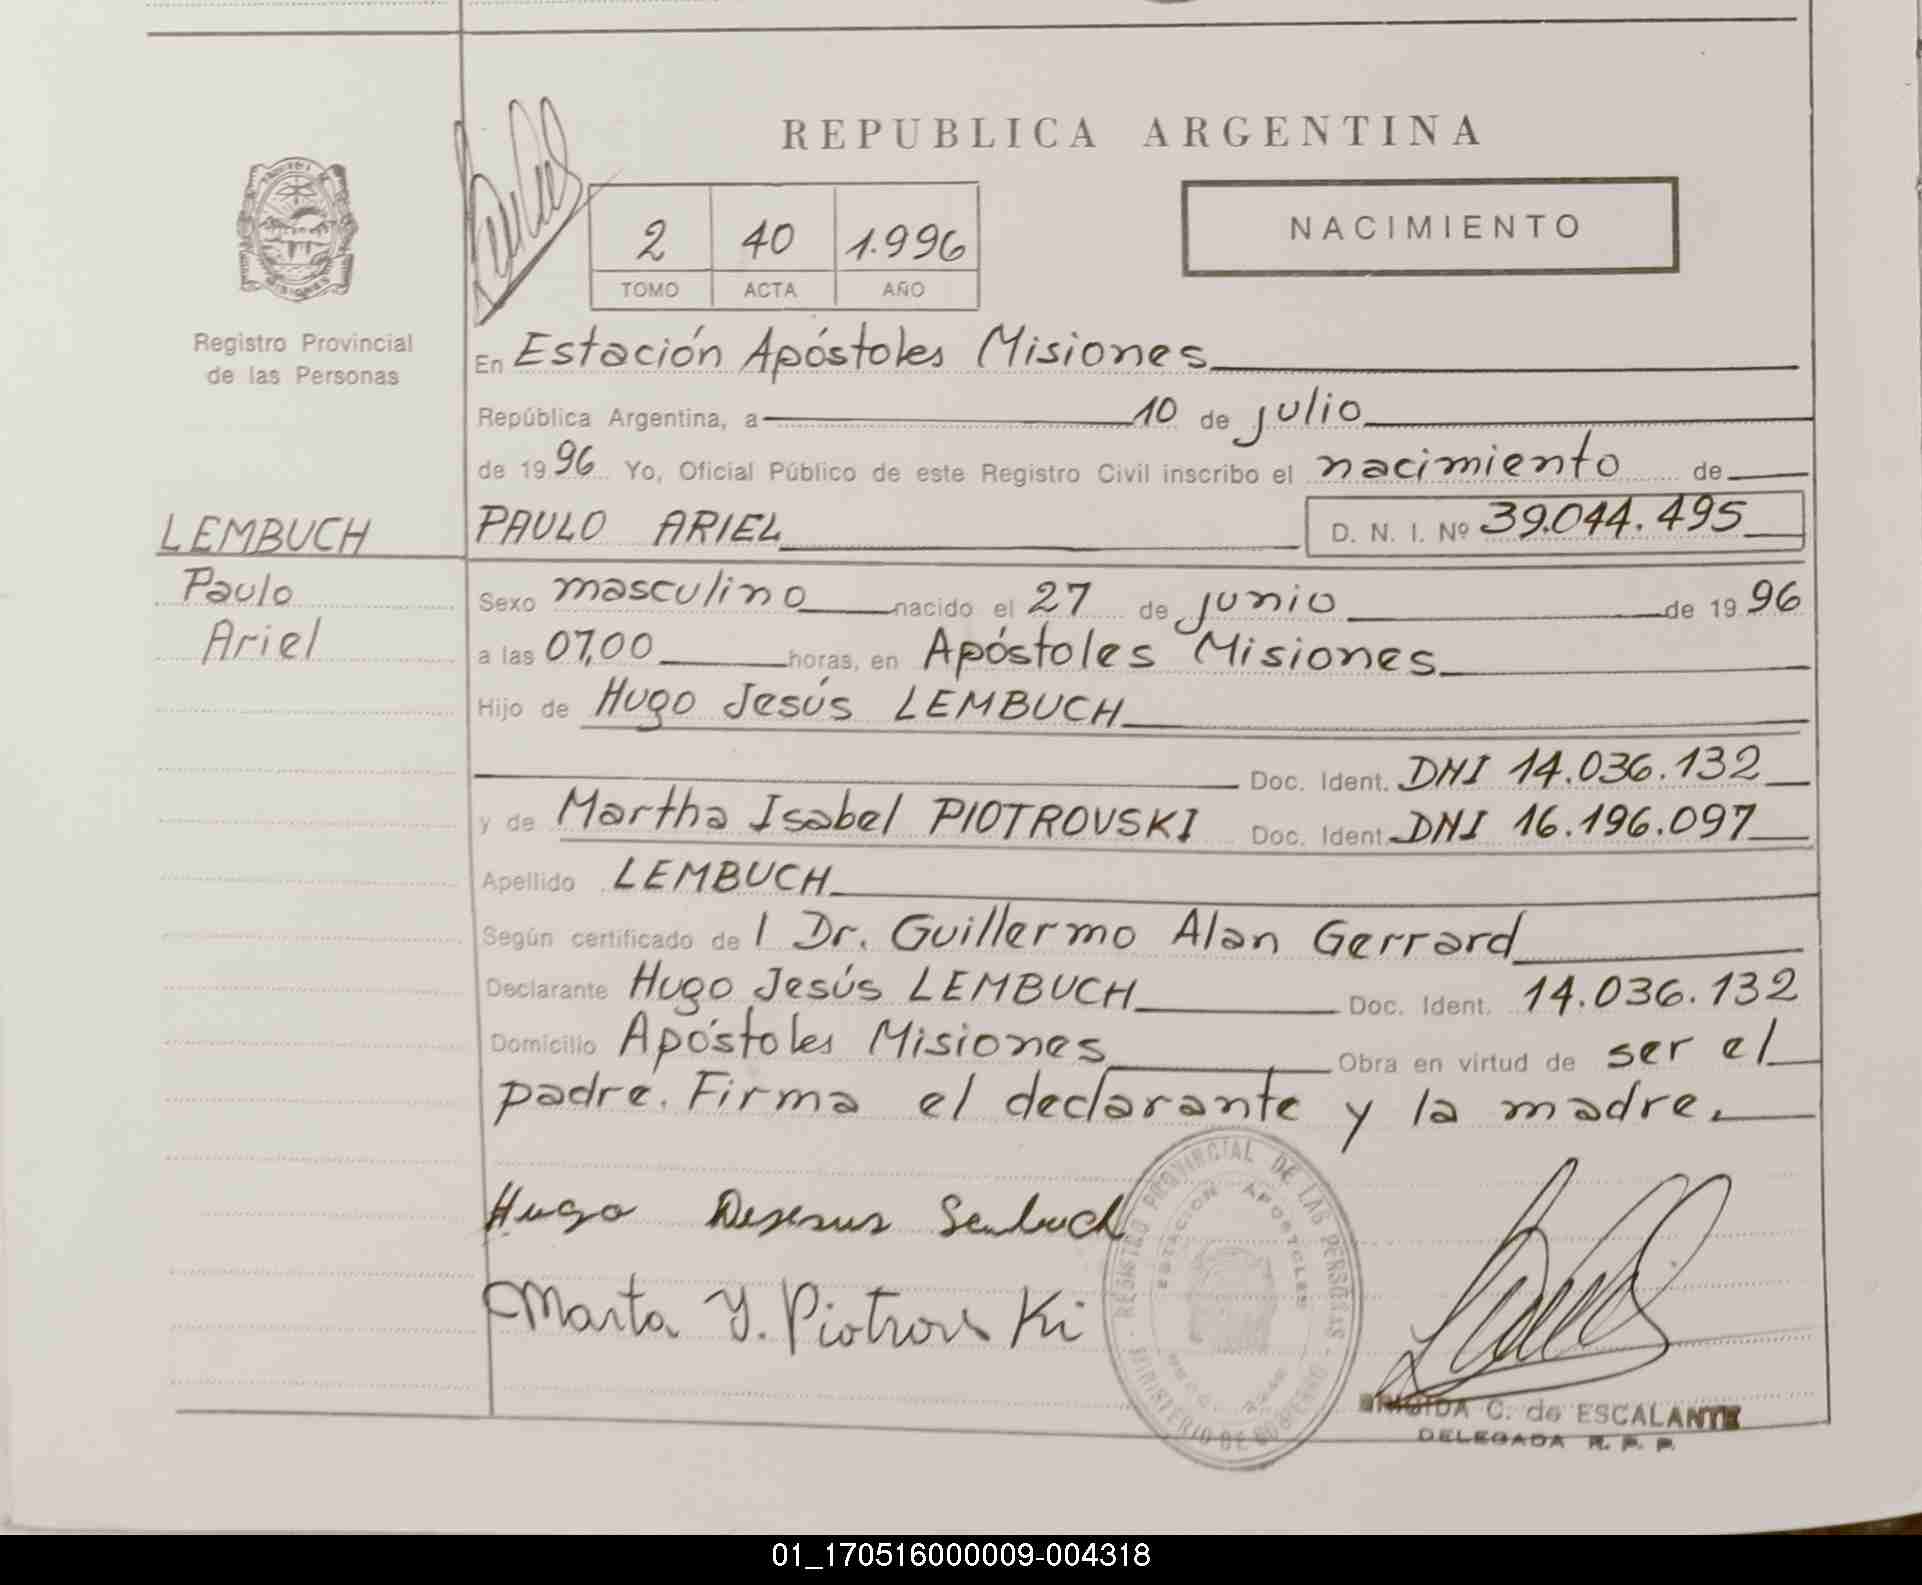 REPUBLICA ARGENTINA
NACIMIENTO
2 40 1.996
TOMO ACTA AÑO
Registro Provincial
de las Personas
En Estación Apóstoles Misiones
República Argentina, a 10 de julio
de 1996 Yo, Oficial Público de este Registro Civil inscribo el nacimiento de
LEMBUCH
Paulo
Ariel
PAULO ARIEL D. N. I. Nº 39.044.495
Sexo masculino nacido el 27 de junio de 1996
a las 07,00 horas, en Apóstoles Misiones
Hijo de Hugo Jesús LEMBUCH
Doc. Ident. DNI 14.036.132
y de Martha Isabel PIOTROVSKI Doc. Ident. DNI 16.196.097
Apellido LEMBUCH
Según certificado de l Dr. Guillermo Alan Gerrard
Declarante Hugo Jesús LEMBUCH Doc. Ident. 14.036.132
Domicilio Apóstoles Misiones Obra en virtud de ser el
padre. Firma el declarante y la madre.
Hugo
Marta Y. Piotrovski
REGISTRO PROVINCIAL DE LAS PERSONAS
ESTACION APOSTOLES
MINISTERIO DE GOBIERNO
C. de ESCALANTE
DELEGADA R. P. P.
01_170516000009-004318